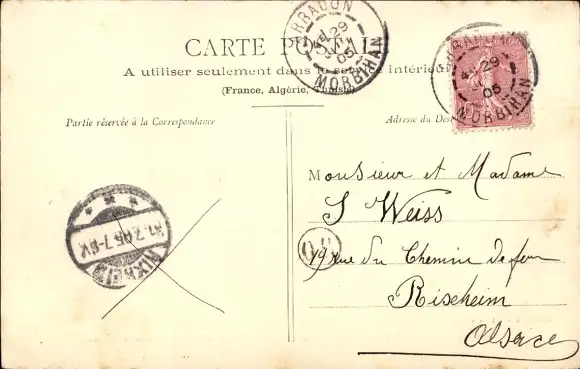 CARTE POSTALE
A utiliser seulement dans le service intérieur
(France, Algérie, Tunisie)
Partie réservée à la Correspondance
Adresse du Dest
ARRADON
29
05
MORBIHAN
ARRADON
29
05
MORBIHAN
Monsieur et Madame
J Weiss
19 rue du Chemin de fer
Rixheim
Alsace
31.7.05.7-8V.
RIXHEIM